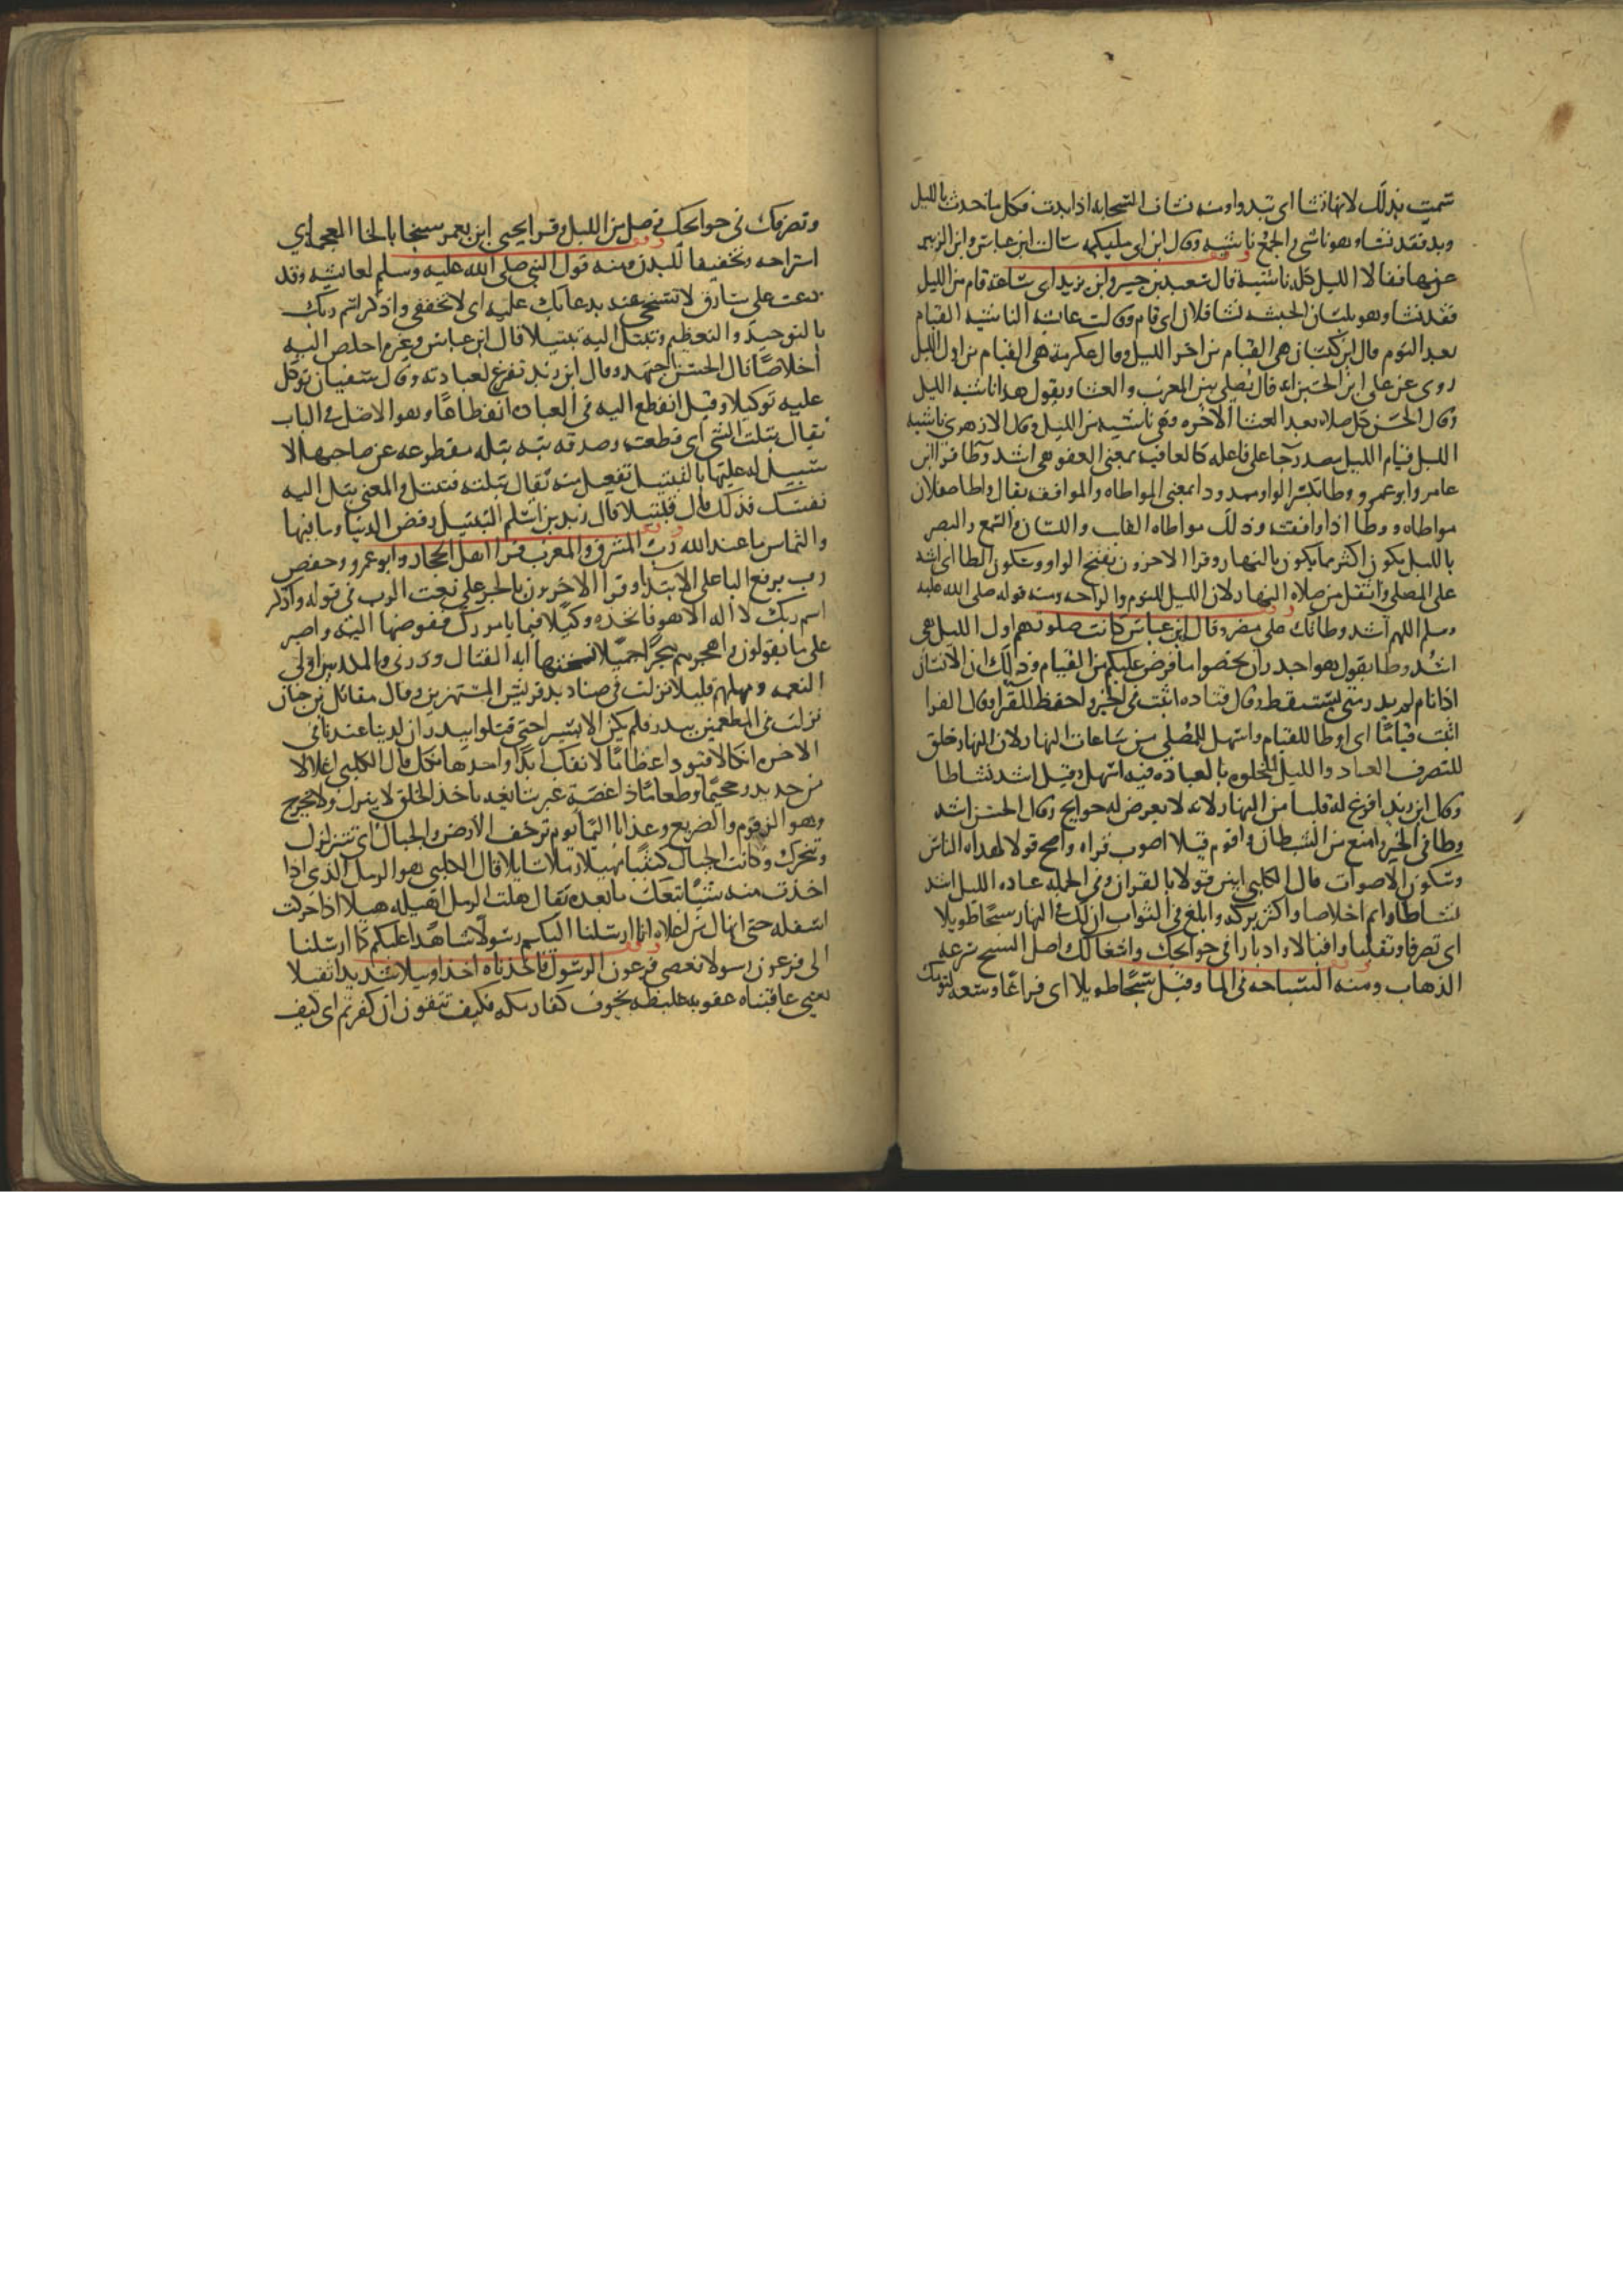 سميت بذلك لانها تنشا اى تبدوا ومنه نشات السحابه اذا بدت فكل ما حدث بالليل
وبد فقد نشا وهو ناشى والجمع ناشيه وقال ابن ابى مليكه سالت ابن عباس وابن الزبير
عنها فقالا الليل كله ناشيه قال سعيد بن جبير وابن زيد اى ساعة قام من الليل
فقد نشا وهو بلسان الحبشه نشا فلان اى قام وقالت عائشه الناشيه القيام
بعد النوم قال ابن كيسان هى القيام من اخر الليل وقال عكرمة هى القيام من اول الليل
روى عن على ابن الحسين انه قال يصلى بين المغرب والعشا ويقول هذا ناشيه الليل
وقال الحسن كل صلاه بعد العشا الاخره فهى ناشيه من الليل وقال الازهرى ناشيه
الليل قيام الليل مصدر جا على فاعله كالعافيه بمعنى العفو هى اشد وطا قرا ابن
عامر وابو عمرو وطا بكسر الواو ممدودا بمعنى المواطاه والموافقه يقال واطات فلان
مواطاه ووطا اذا وافقته وذلك مواطاه القلب واللسان والسمع والبصر
بالليل يكون اكثر مما يكون بالنهار وقرا الاخرون بفتح الواو وسكون الطا اى اشد
على المصلى واثقل من صلاه النهار لان الليل للنوم والراحه ومنه قوله صلى الله عليه
وسلم اللهم اشدد وطاتك على مضر وقال ابن عباس كانت صلوتهم اول الليل هى
اشد وطا يقول هو اجدر ان يحصوا ما فرض عليكم من القيام وذلك ان الانسان
اذا نام لم يدر متى يستيقظ وقال قتاده اثبت فى الخير واحفظ للقراه وقال الفرا
اثبت قياما اى اوطا للقيام واسهل للمصلى من ساعات النهار لان النهار خلق
للتصرف العباد والليل للخلوه بالعباده فيه اسهل وقيل اشد نشاطا
وقال ابن زيد افرغ له قلبا من النهار لانه لا يعرض له حوايج وقال الحسن اشد
وطا فى الخير وامنع من الشيطان واقوم قيلا اصوب قراه واصح قولا لهداه الناس
وسكون الاصوات قال الكلبى ابين قولا بالقران وفى الجمله عباده الليل اشد
نشاطا واتم اخلاصا واكثر بركه وابلغ فى الثواب ان لك فى النهار سبحا طويلا
اى تصرفا وتقلبا واقبالا وادبارا فى حوايجك واشغالك اصل السبح سرعه
الذهاب ومنه السباحه فى الما وقيل سبحا طويلا اى فراغا وسعه لنومك
وتصرفك فى حوايجك فصل من الليل وقرا يحيى ابن يعمر سبخا بالخا المعجمه اى
استراحه وتخفيفا للبدن ومنه قول النبى صلى الله عليه وسلم لعايشه وقد
دعت على سارق لا تسبخى عنه بدعائك عليه اى لا تخففى واذكر اسم ربك
بالتوحيد والتعظيم وتبتل اليه تبتيلا قال ابن عباس وغيره اخلص اليه
اخلاصا قال الحسن اجتهد وقال ابن زيد تفرغ لعبادته وقال سفيان توكل
عليه توكيلا وقيل انقطع اليه فى العباده انقطاعا وهو الاصل فى الباب
يقال بتلت الشى اى قطعته وصدقه بته بتله مقطوعه عن صاحبها لا
سبيل له عليها بالتبتيل تفعيل منه يقال بتلته فتبتل والمعنى بتل اليه
نفسك فذلك قال تبتيلا قال زيد بن اسلم التبتيل رفض الدنيا وما فيها
والتماس ما عند الله رب المشرق والمغرب قرا اهل الحجاز وابو عمرو وحفص
رب برفع البا على الابتدا وقرا الاخرون بالجر على نعت الرب فى قوله واذكر
اسم ربك لا اله الا هو فاتخذه وكيلا فيما يامرك ففوضها اليه واصبر
على ما يقولون واهجرهم هجرا جميلا نسختها ايه القتال وذرنى والمكذبين اولى
النعمه ومهلهم قليلا نزلت فى صناديد قريش المستهزين وقال مقاتل بن حيان
نزلت فى المطعمين ببدر فلم يكن الا يسير حتى قتلوا ببدر ان لدينا عندنا فى
الاخره انكالا قيودا عظاما لا تفك ابدا واحدها نكل قال الكلبى اغلالا
من حديد وجحيما وطعاما ذا غصة غير سائغه ياخذ الخلق لا ينزل ولا يخرج
وهو الزقوم والضريع وعذابا اليما يوم ترجف الارض والجبال اى تتزلزل
وتتحرك وكانت الجبال كثيبا مهيلا رملا سايلا قال الكلبى هو الرمل الذى اذا
اخذت منه شيئا تبعك ما بعده يقال هلت الرمل اهيله هيلا اذا حركت
اسفله حتى انهال من اعلاه انا ارسلنا اليكم رسولا شاهدا عليكم كما ارسلنا
الى فرعون رسولا فعصى فرعون الرسول فاخذناه اخذا وبيلا شديدا ثقيلا
يعنى عاقبناه عقوبه غليظه يخوف كفار مكه فكيف تتقون ان كفرتم اى كيف